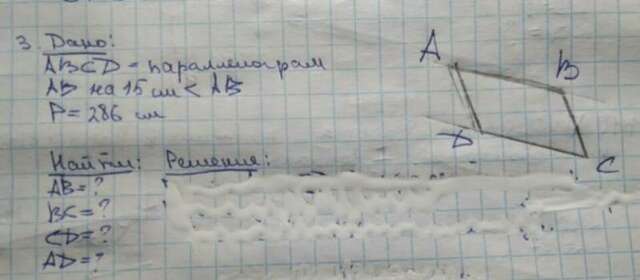 3. Дано:
ABCD - параллелограм
AD на 15 см < AB
P = 286 см
A
B
D
C
Найти: Решение:
AB = ?
BC = ?
CD = ?
AD = ?